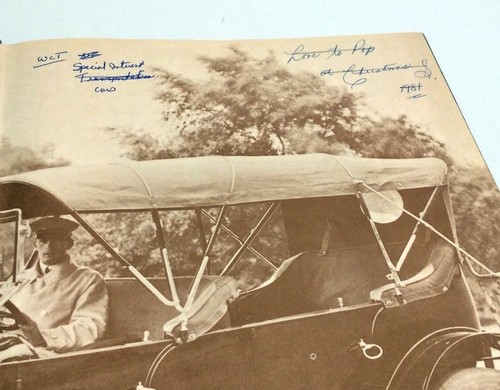 WCT
Special Interest
Transportation
Cars
Love to Pop
at Christmas
1981